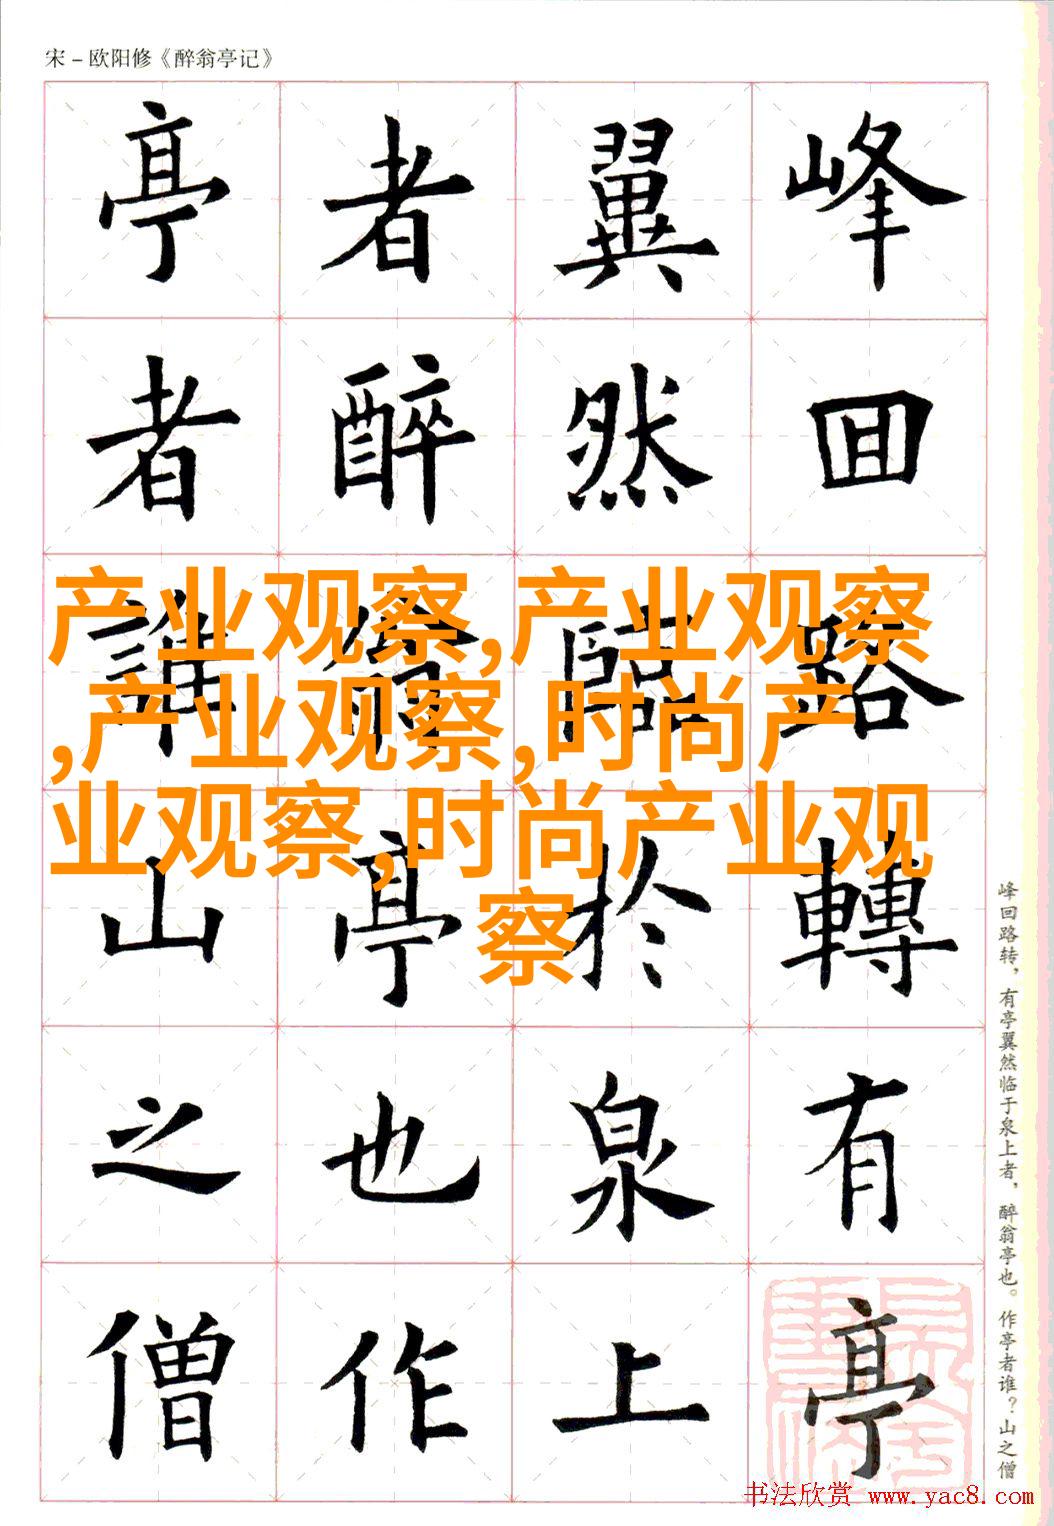 宋－欧阳修《醉翁亭记》
峰囬路轉有亭
翼然臨於泉上
者醉翁亭也作
亭者誰山之僧
产业观察,产业观察
,产业观察,时尚产
业观察,时尚产业观
察
峰回路转，有亭翼然临于泉上者，醉翁亭也。作亭者谁？山之僧
书法欣赏 www.yac8.com